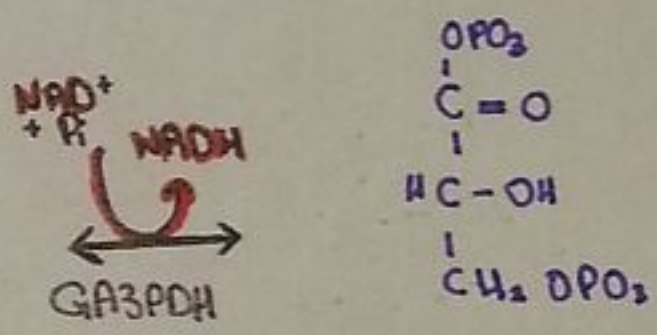 NAD+
+ Pi
NADH
GA3PDH
OPO3
C = O
HC - OH
CH2 OPO3